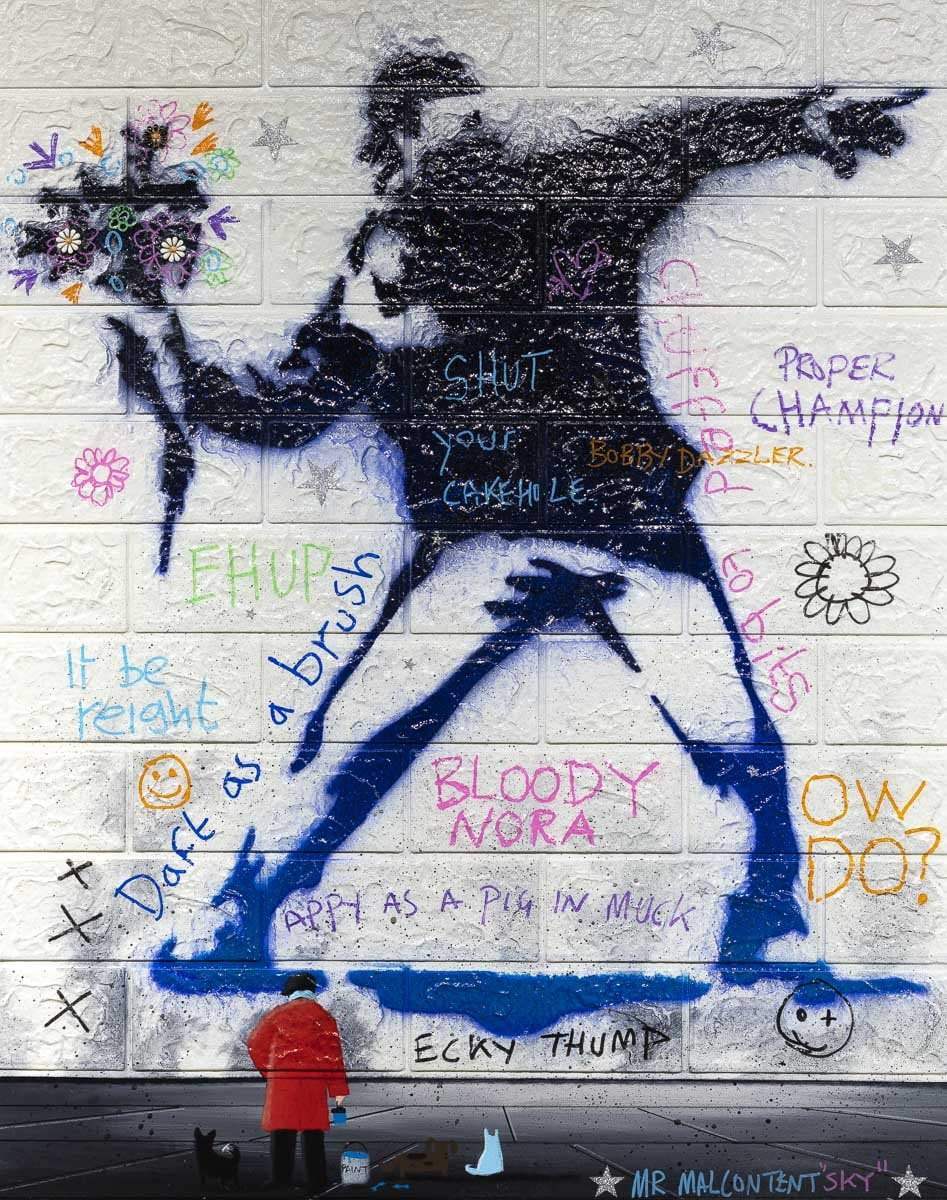 SHUT
your
CAKEHOLE
PROPER
CHAMPION
BOBBY DAZZLER.
chuffed to bits
EHUP
Daft as a brush
It be
reight
BLOODY
NORA
OW
DO?
APPY AS A PIG IN MUCK
ECKY THUMP
PAINT
MR MALCONTENT "SKY"